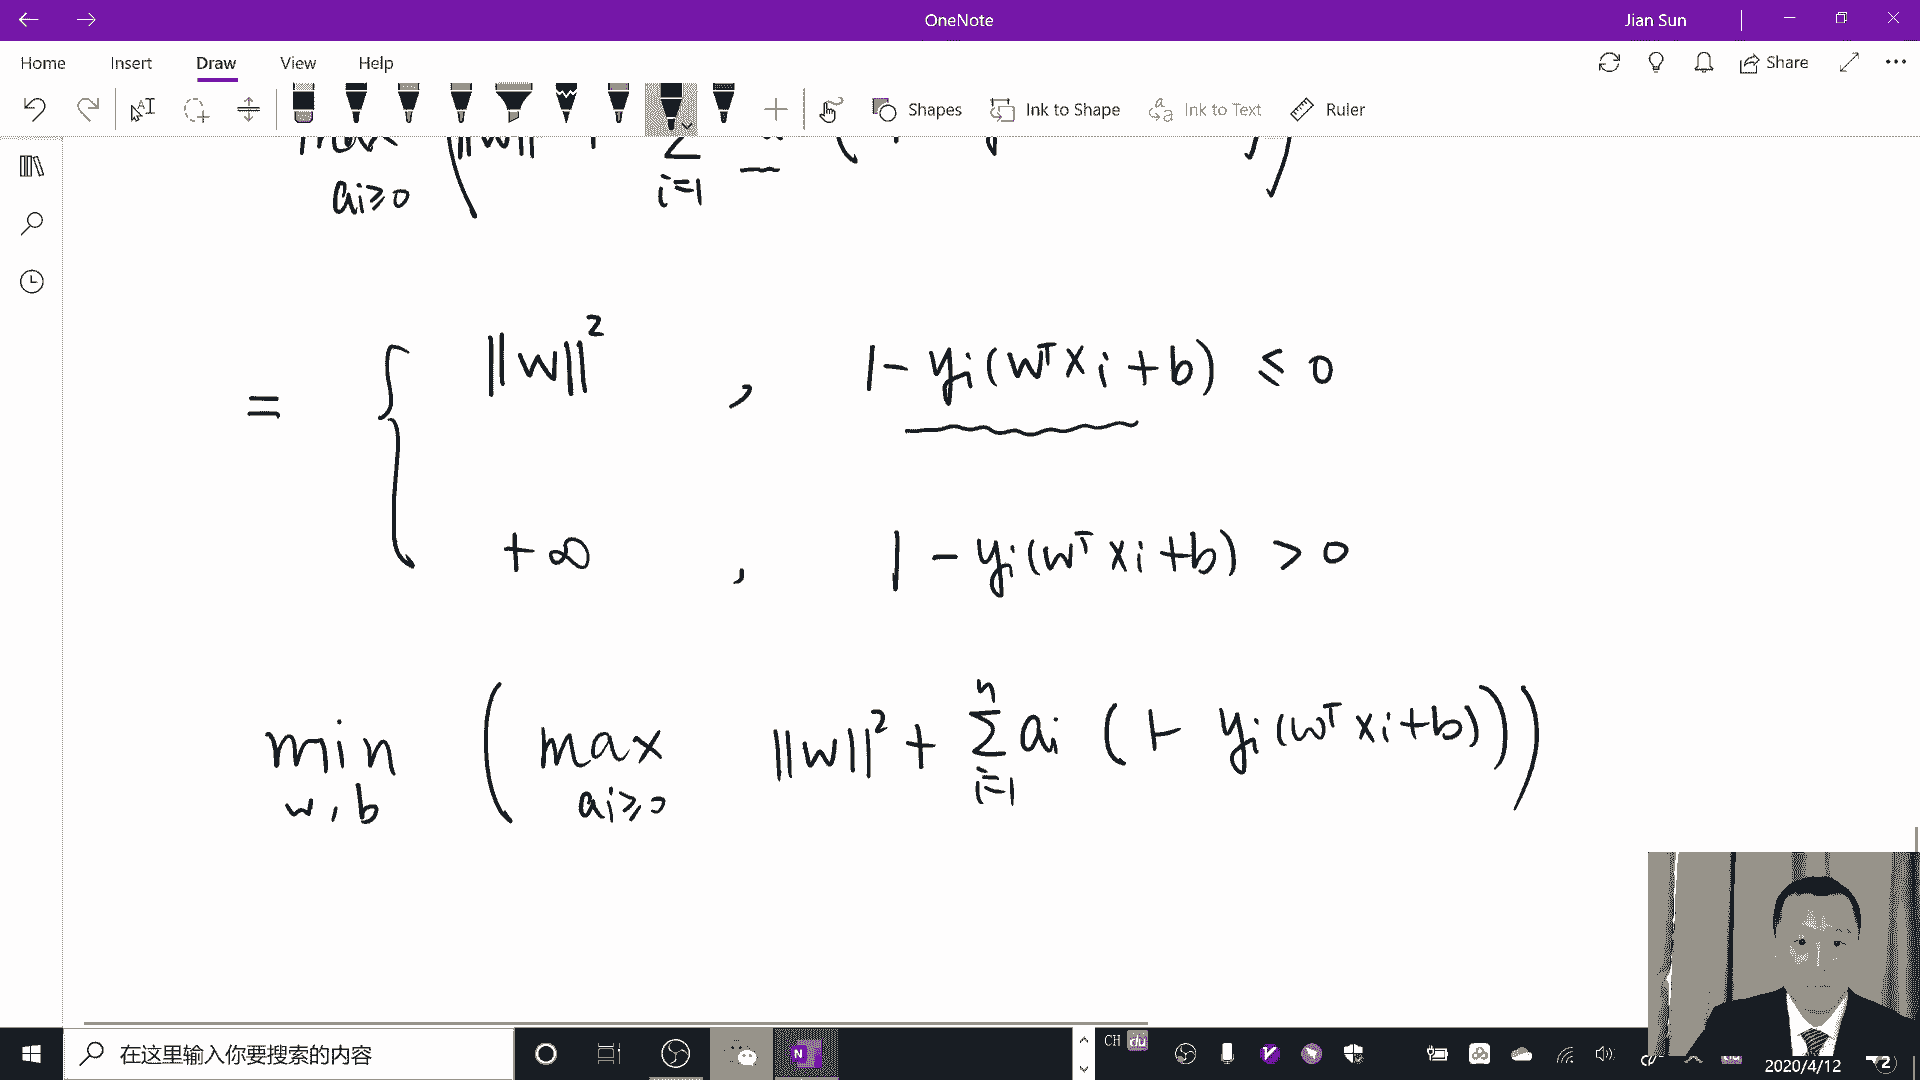 OneNote
Jian Sun
Home Insert Draw View Help
Share
Shapes Ink to Shape Ink to Text Ruler
max
ai≥0 i=1
= { ||w||² , 1 - yi(wᵀxi+b) ≤ 0
+∞ , 1 - yi(wᵀxi+b) > 0
min ( max ||w||² + Σ ai (1- yi(wᵀxi+b)))
w,b ai≥0 i=1 n
在这里输入你要搜索的内容
CH du
2020/4/12
2